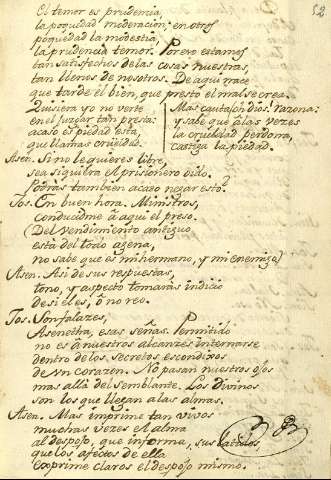 52
El temor es prudencia,
la poquedad moderacion; en otros
poquedad la modestia,
la prudencia temor. Poreso estamos
tan satisfechos delas cosas nuestras,
tan llenos de nosotros. De aqui nace
que tarde el bien, que presto el mal se crea.
Quisiera yo no verte
en el juzgar tan presta:
acaso es piedad esta,
que llamas crueldad.
Mas cauta es Dios. razona:
y sabe que alas vezes
la crueldad perdona,
castiga la piedad.
Asen. Si no le quieres libre,
sea siquiera el prisionero oido.
Podras tambien acaso negar esto?
Jos. En buen hora. Ministros,
conducidme à aqui el preso.
(Del vendimiento antiguo
està del todo agena,
no sabe que es mi hermano, y mi enemigo)
Asen. Asi de sus respuestas,
tono, y aspecto tomaràs indicio
de si el es, ò no reo.
Jos. Son falazes,
Asenetha, esas señas. Permitido
no es à nuestros alcanzes internarse
dentro de los secretos escondixos
de un corazen. No pasan nuestros ojos
mas allà del semblante. Los Divinos
son los que llegan a las almas.
Asen. Mas imprime tan vivos
muchas vezes el alma
al despojo, que informa, sus
que los afectos de ella
exprime claros el despojo mismo.